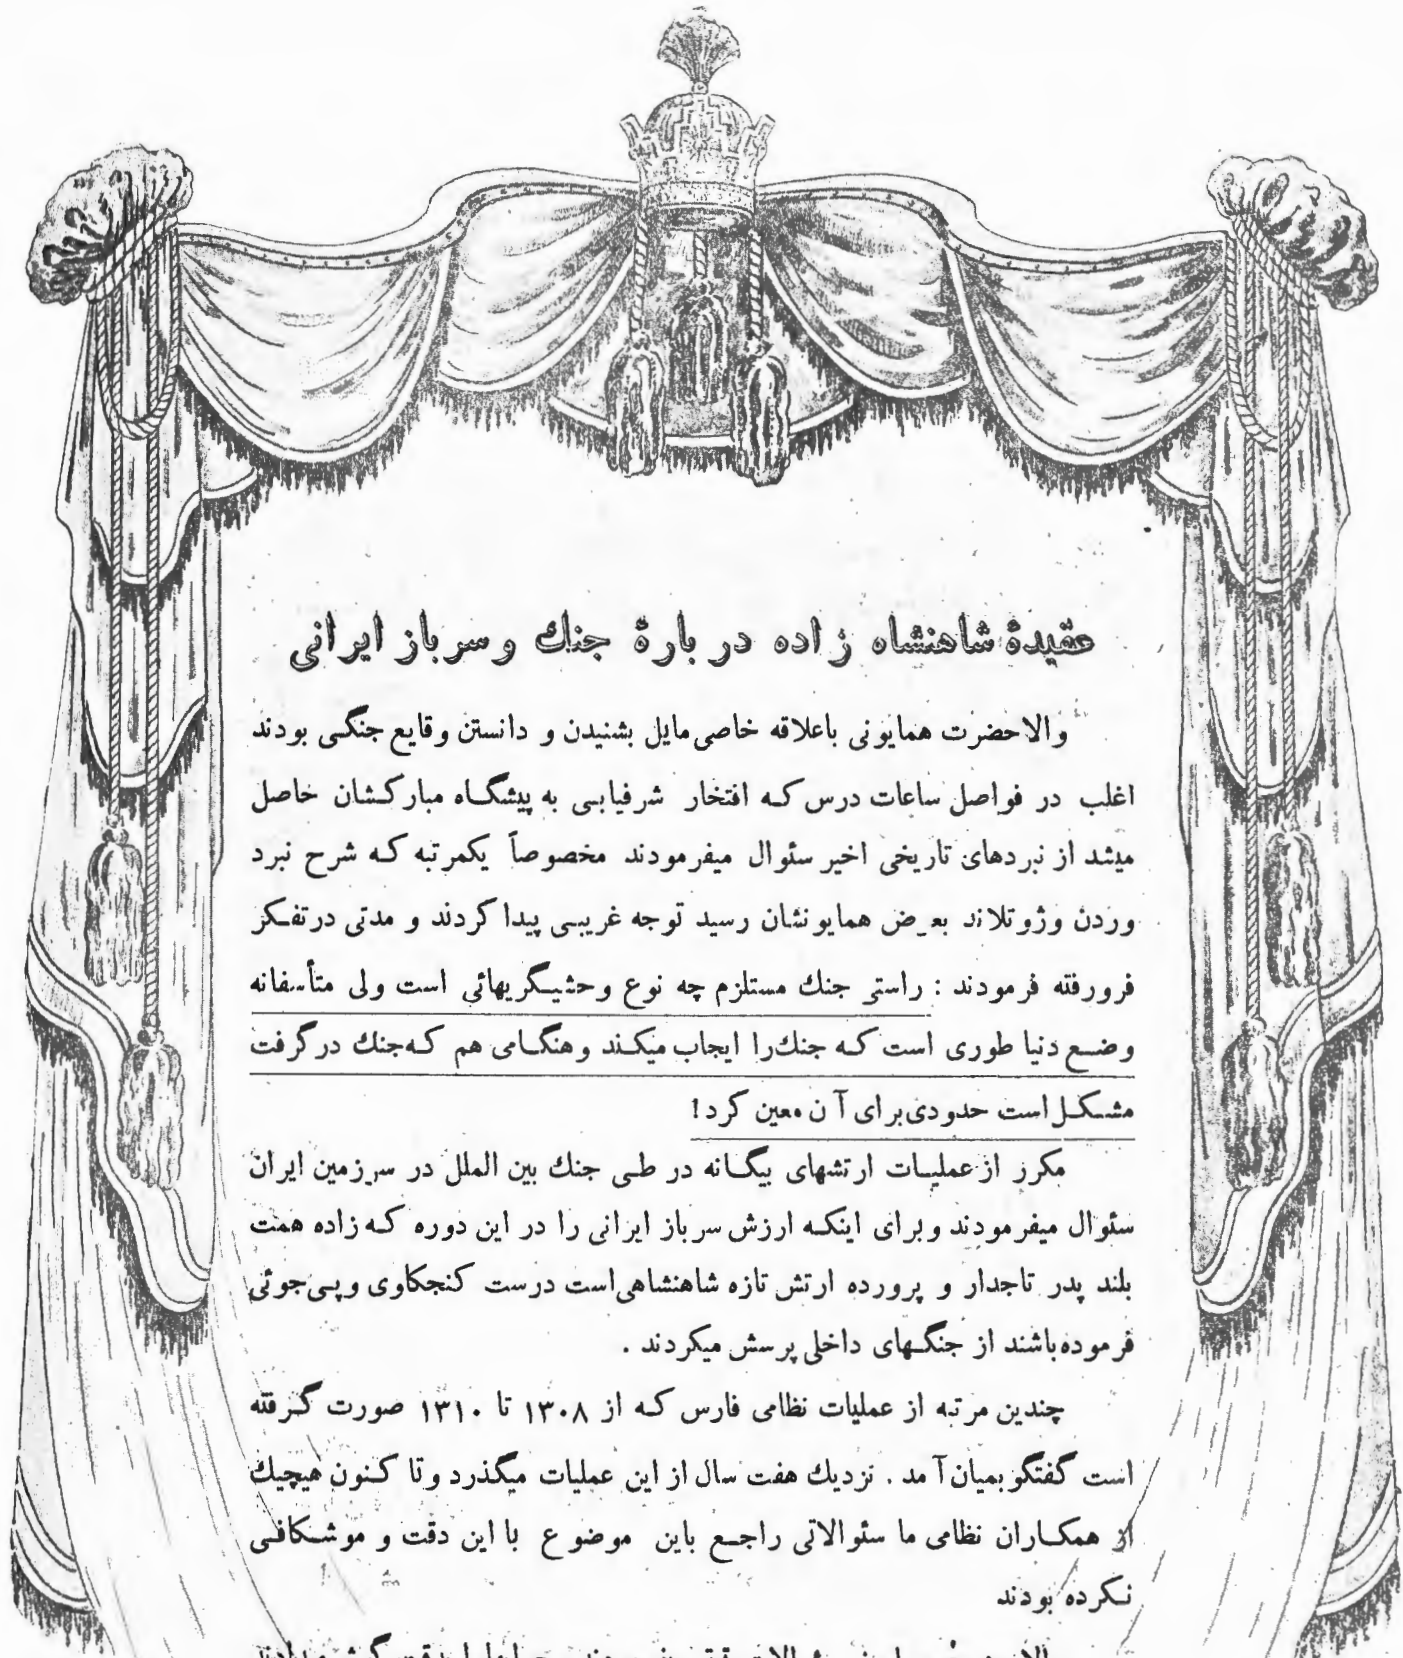 عقیدهٔ شاهنشاه زاده در بارهٔ جنك و سرباز ایرانی
والاحضرت همایونی باعلاقه خاصی مایل بشنیدن و دانستن وقایع جنگی بودند
اغلب در فواصل ساعات درس که افتخار شرفیابی به پیشگاه مبارکشان حاصل
میشد از نبردهای تاریخی اخیر سئوال میفرمودند مخصوصاً یکمرتبه که شرح نبرد
وردن وژوتلاند بعرض همایونشان رسید توجه غریبی پیدا کردند و مدتی درتفکر
فرورفته فرمودند : راستی جنك مستلزم چه نوع وحشیگریهائی است ولی متأسفانه
وضع دنیا طوری است که جنك‌را ایجاب میکند وهنگامی هم که‌جنك درگرفت
مشکل است حدودی‌برای آن معین کرد!
مکرر از عملیات ارتشهای بیگانه در طی جنك بین الملل در سرزمین ایران
سئوال میفرمودند و برای اینکه ارزش سرباز ایرانی را در این دوره که زاده همت
بلند پدر تاجدار و پرورده ارتش تازه شاهنشاهی‌است درست کنجکاوی وپی‌جوئی
فرموده‌باشند از جنگهای داخلی پرسش میکردند .
چندین مرتبه از عملیات نظامی فارس که از ۱۳۰۸ تا ۱۳۱۰ صورت گرفته
است گفتگو بمیان آمد . نزدیك هفت سال از این عملیات میگذرد و تا کنون هیچیك
از همکاران نظامی ما سئوالاتی راجع باین موضوع با این دقت و موشکافی
نکرده بودند